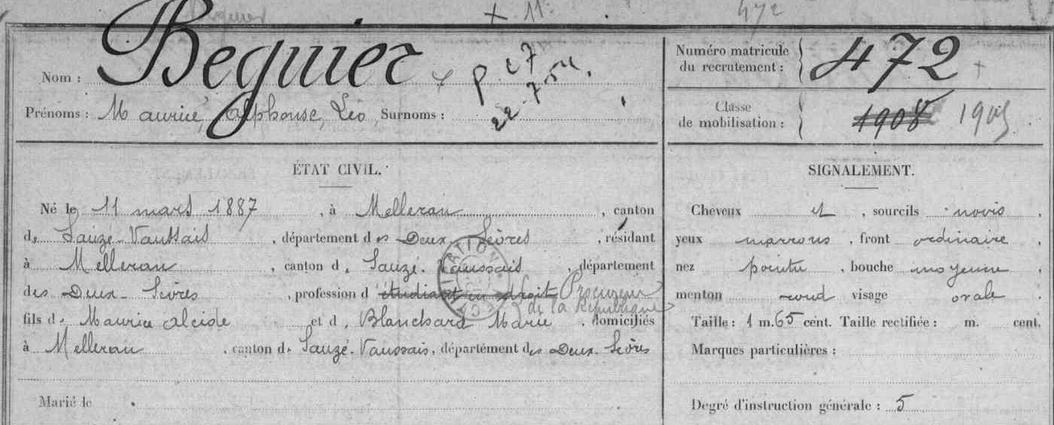 + 11.
472
Nom : Beguier
P 27
22-7-54.
Prénoms : Maurice, Alphonse, Léo, Surnoms :
Numéro matricule du recrutement : 472
Classe de mobilisation : 1908 1905
ÉTAT CIVIL.
Né le 11 mars 1887, à Melleran, canton
de Sauzé-Vaussais, département des Deux Sèvres, résidant
à Melleran, canton de Sauzé-Vaussais, département
des Deux-Sèvres, profession d'étudiant en droit Procureur de la République
fils de Maurice Alcide et de Blanchard Marie, domiciliés
à Melleran, canton de Sauzé-Vaussais, département des Deux-Sèvres
Marié le
SIGNALEMENT.
Cheveux et, sourcils noirs,
yeux marrons, front ordinaire
nez pointu, bouche moyenne
menton rond visage ovale
Taille : 1 m. 65 cent. Taille rectifiée : m. cent.
Marques particulières :
Degré d'instruction générale : 5